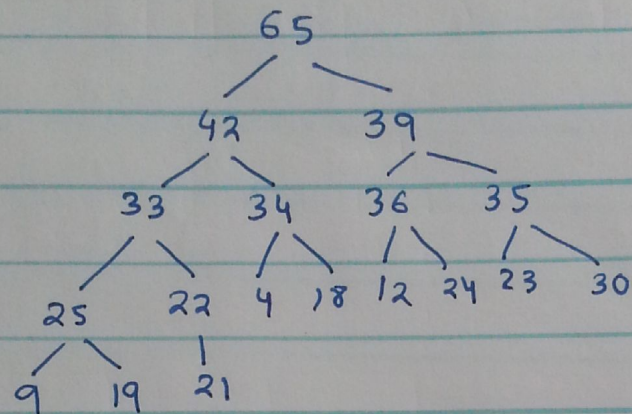 65
42 39
33 34 36 35
25 22 4 18 12 24 23 30
9 19 21